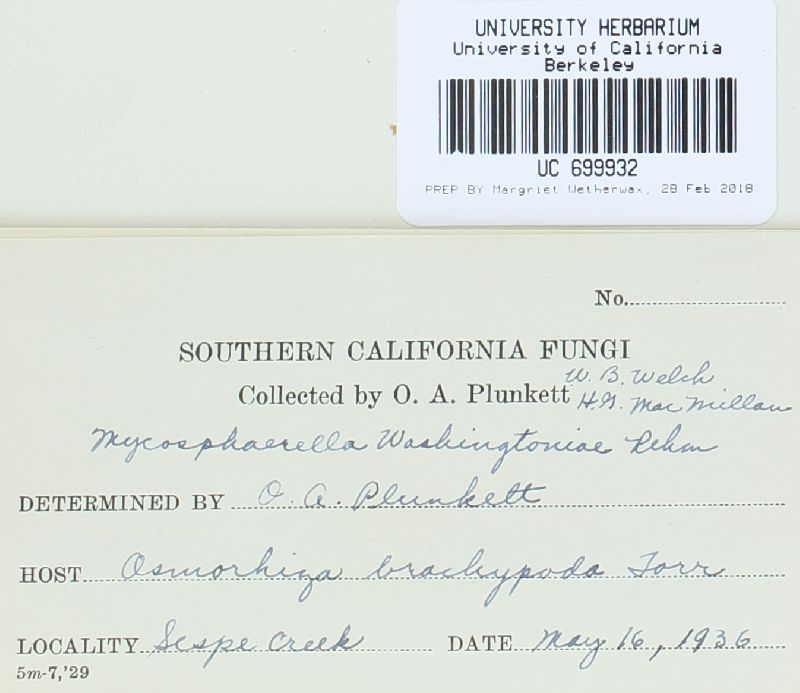 UNIVERSITY HERBARIUM
University of California
Berkeley
UC 699932
PREP BY Margriet Wetherwax, 28 Feb 2018
No.
SOUTHERN CALIFORNIA FUNGI
W. B. Welch
Collected by O. A. Plunkett H.G. MacMillan
Mycosphaerella Washingtoniae Rehm
DETERMINED BY O. A. Plunkett
HOST Osmorhiza brachypoda Torr
LOCALITY Sespe Creek DATE May 16, 1936
5m-7,'29